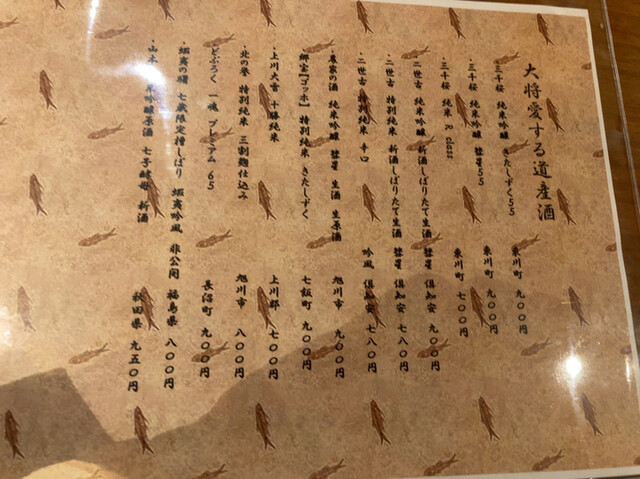 大将愛する道産酒
・三千桜 純米吟醸 きたしずく55 東川町 九〇〇円
・三千桜 純米吟醸 彗星55 東川町 九〇〇円
・三千桜 純米 70 class 東川町 七〇〇円
・二世古 純米吟醸 新酒しぼりたて生酒 彗星 倶知安 九〇〇円
・二世古 特別純米 新酒しぼりたて生酒 彗星 倶知安 七八〇円
・二世古 特別純米 辛口 吟風 倶知安 七八〇円
・農家の酒 純米吟醸 彗星 生酒 生原酒 旭川市 九〇〇円
・郷宝【ゴッホ】 特別純米 きたしずく 七飯町 九〇〇円
・上川大雪 十勝純米 上川郡 七〇〇円
・北の誉 特別純米 三割麹仕込み 旭川市 八〇〇円
・どぶろく 一魂 プレミアム 65 長沼町 九〇〇円
・蝦夷の曙 七歳限定槽しぼり 蝦夷吟風 非公開 福島県 八〇〇円
・山本 純米吟醸原酒 七号酵母 新酒 秋田県 九五〇円